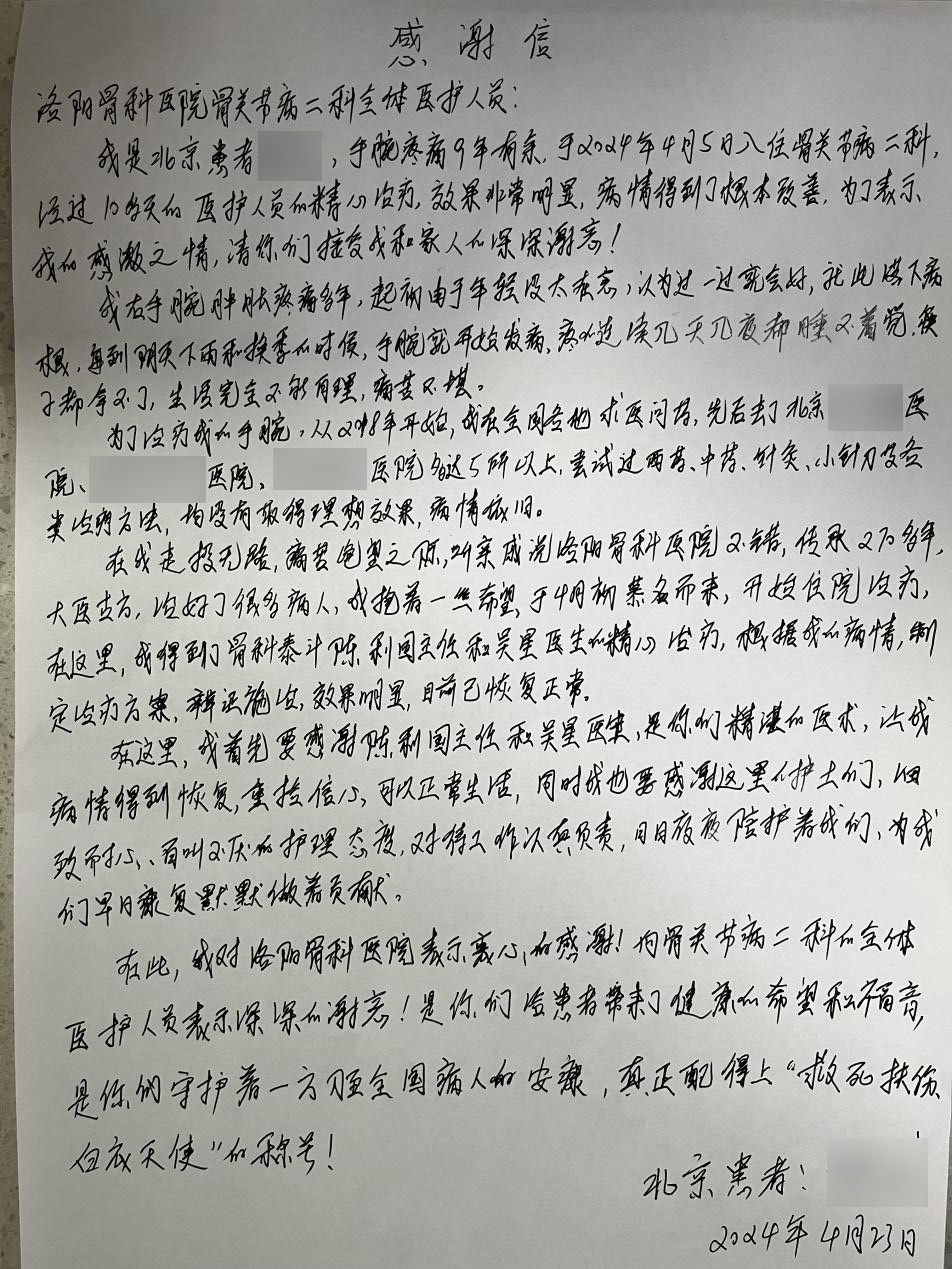 感谢信
洛阳骨科医院骨关节病二科全体医护人员：
我是北京患者，手腕疼痛9年有余，于2024年4月5日入住骨关节病二科，
经过10多天的医护人员的精心治疗，效果非常明显，病情得到了根本改善，为了表示
我的感激之情，请你们接受我和家人的深深谢意！
我右手腕肿胀疼痛多年，起初由于年轻没太在意，以为过一过就会好，就此落下病
根，每到阴天下雨和换季的时候，手腕就开始发病，疼的连续几天几夜都睡不着觉，筷
子都拿不了，生活完全不能自理，痛苦不堪。
为了治疗我的手腕，从2018年开始，我在全国各地求医问药，先后去了北京医
院、医院、医院多达5所以上，尝试过西药、中药、针灸、小针刀及各
类治疗方法，均没有取得理想效果，病情依旧。
在我走投无路，痛苦绝望之际，听亲戚说洛阳骨科医院不错，传承270多年，
大医古方，治好了很多病人，我抱着一丝希望，于4月初慕名而来，开始住院治疗，
在这里，我得到了骨科泰斗陈利国主任和吴星医生的精心治疗，根据我的病情，制
定治疗方案，辨证施治，效果明显，目前已恢复正常。
在这里，我首先要感谢陈利国主任和吴星医生，是你们精湛的医术，让我
病情得到恢复，重拾信心，可以正常生活，同时我也要感谢这里的护士们，细
致而耐心、百叫不厌的护理态度，对待工作认真负责，日日夜夜陪护着我们，为我
们早日康复默默做着贡献。
在此，我对洛阳骨科医院表示衷心的感谢！向骨关节病二科的全体
医护人员表示深深的谢意！是你们给患者带来了健康的希望和福音，
是你们守护着一方乃至全国病人的安康，真正配得上“救死扶伤
白衣天使”的称号！
北京患者：
2024年4月23日